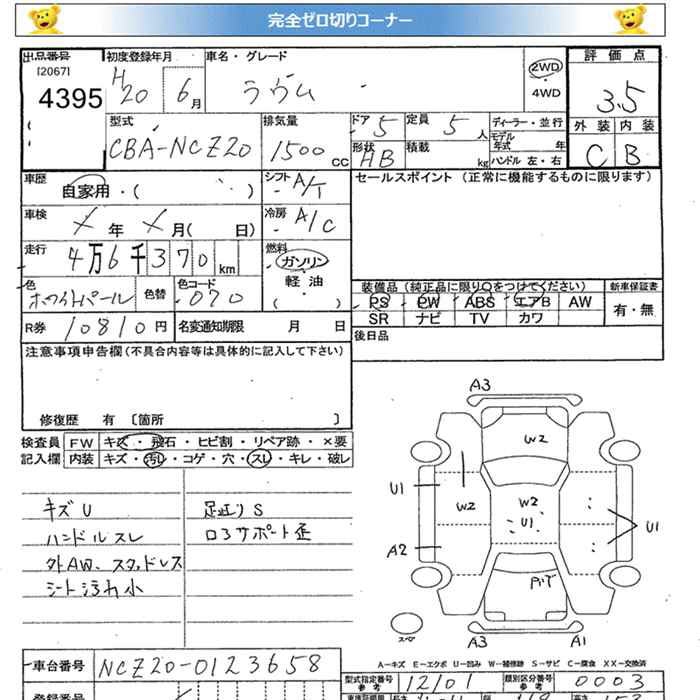 完全ゼロ切りコーナー
出品番号 初度登録年月 車名・グレード 評価点
[2067] H 20 6月 ラウム 2WD 3.5
4395 4WD
型式 排気量 ドア 5 定員 5人 ディーラー・並行 外装 内装
CBA-NCZ20 1500cc 形状 HB 積載 kg モデル年式 年 C B
ハンドル 左・右
車歴 自家用・( ) シフト A/T セールスポイント (正常に機能するものに限ります)
車検 年 月( 日) 冷房 A/C
走行 4万6千370km 燃料 ガソリン
軽油
( )
色 ホワイトパール 色替 色コード 070 装備品 (純正品に限り○をつけてください) 新車保証書
PS PW ABS エアB AW 有・無
SR ナビ TV カワ
R券 10810円 名変通知期限 月 日 後日品
注意事項申告欄 (不具合内容等は具体的に記入して下さい)
修復歴 有 〔箇所 〕
検査員 FW キズ・飛石・ヒビ割・リペア跡・×要
記入欄 内装 キズ・汚れ・コゲ・穴・スレ・キレ・破レ
キズU
ハンドルスレ
外AW、スタッドレス
シート汚れ小
足廻りS
ロアサポート歪
A3
W2
U1
W2
W2
U1
U1
A2
スペア
A3
A1
A-キズ E-エクボ U-凹み W-補修跡 S-サビ C-腐食 XX-交換済
車台番号 NCZ20-0123658 型式指定番号 参考 12101 類別区分番号 参考 0003
登録番号